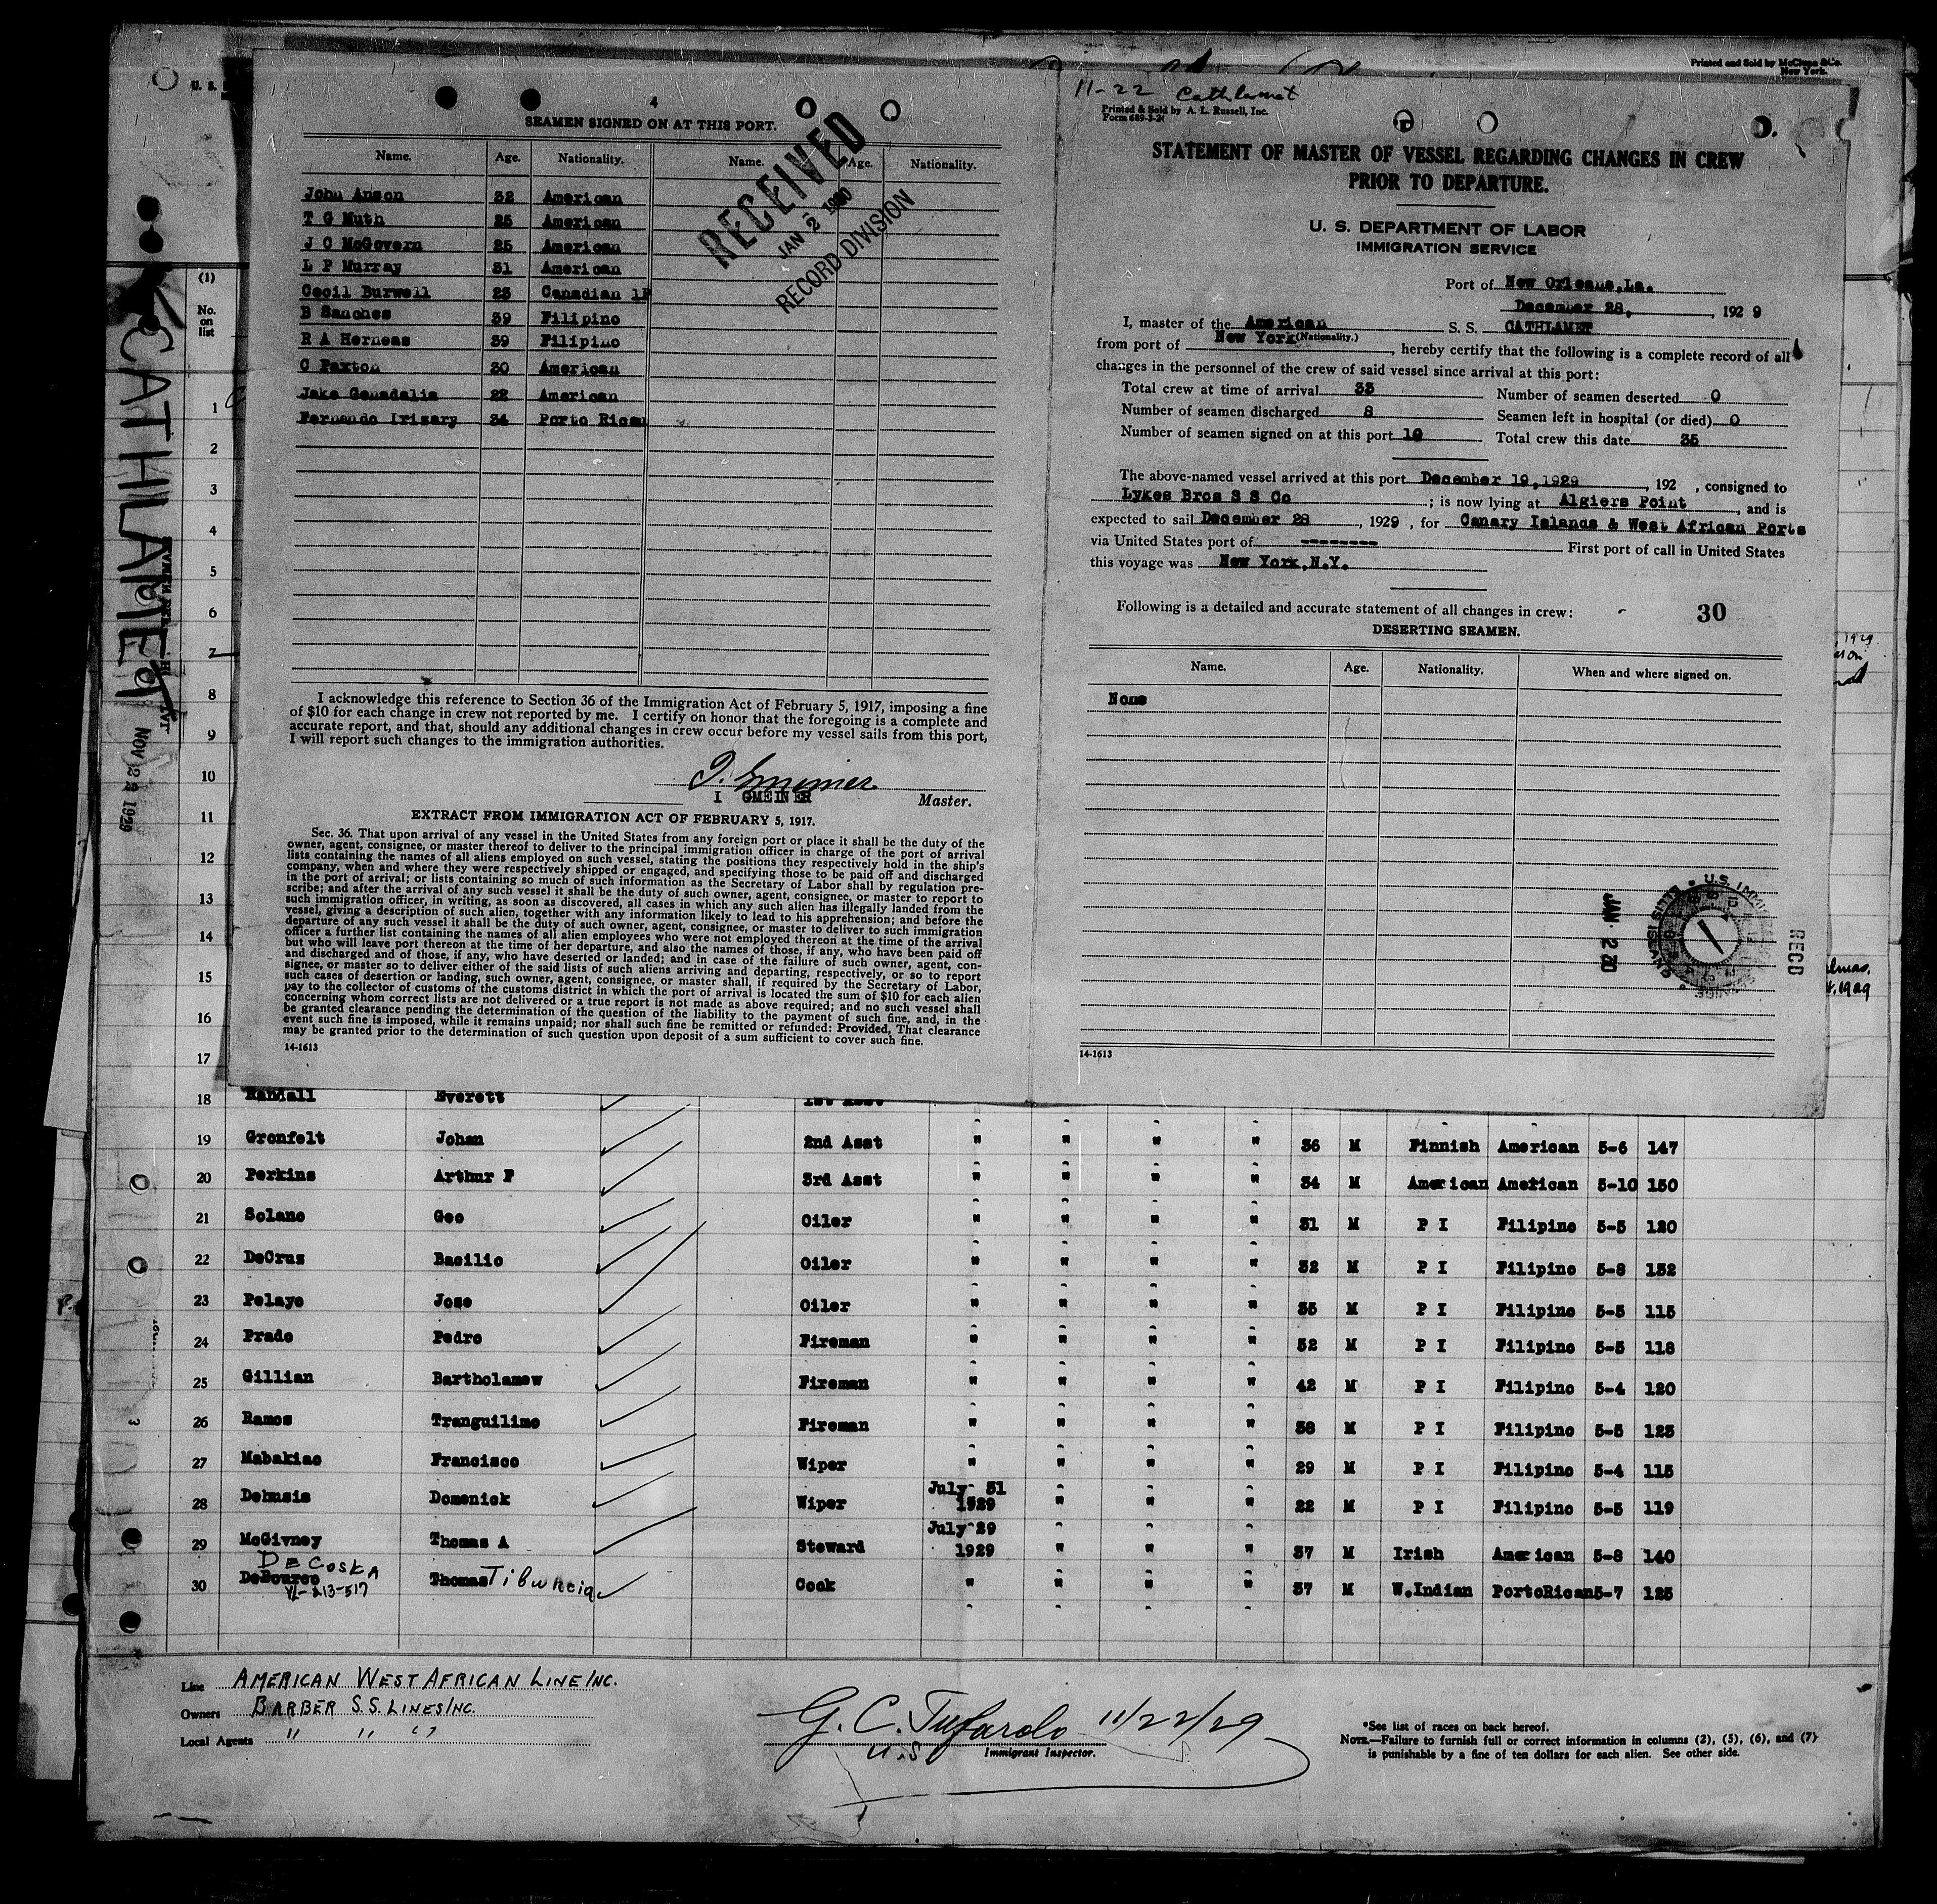 Printed and Sold by McClunn & Co.
New York.
U. S.
4
SEAMEN SIGNED ON AT THIS PORT.
Name. Age. Nationality. Name. Age. Nationality.
John Anson 32 American
T G Muth 25 American
J C McGovern 25 American
L P Murray 31 American
Cecil Burwell 23 Canadian LP
B Sanches 39 Filipino
R A Herneas 39 Filipino
C Paxton 30 American
Jake Genadalis 22 American
Fernando Irizary 34 Porto Rican
RECEIVED
JAN 2 1930
RECORD DIVISION
I acknowledge this reference to Section 36 of the Immigration Act of February 5, 1917, imposing a fine
of $10 for each change in crew not reported by me. I certify on honor that the foregoing is a complete and
accurate report, and that, should any additional changes in crew occur before my vessel sails from this port,
I will report such changes to the immigration authorities.
I. Gmeiner
I GMEINER Master.
EXTRACT FROM IMMIGRATION ACT OF FEBRUARY 5, 1917.
Sec. 36. That upon arrival of any vessel in the United States from any foreign port or place it shall be the duty of the
owner, agent, consignee, or master thereof to deliver to the principal immigration officer in charge of the port of arrival
lists containing the names of all aliens employed on such vessel, stating the positions they respectively hold in the ship's
company, when and where they were respectively shipped or engaged, and specifying those to be paid off and discharged
in the port of arrival; or lists containing so much of such information as the Secretary of Labor shall by regulation pre-
scribe; and after the arrival of any such vessel it shall be the duty of such owner, agent, consignee, or master to report to
such immigration officer, in writing, as soon as discovered, all cases in which any such alien has illegally landed from the
vessel, giving a description of such alien, together with any information likely to lead to his apprehension; and before the
departure of any such vessel it shall be the duty of such owner, agent, consignee, or master to deliver to such immigration
officer a further list containing the names of all alien employees who were not employed thereon at the time of the arrival
but who will leave port thereon at the time of her departure, and also the names of those, if any, who have been paid off
and discharged and of those, if any, who have deserted or landed; and in case of the failure of such owner, agent, con-
signee, or master so to deliver either of the said lists of such aliens arriving and departing, respectively, or so to report
such cases of desertion or landing, such owner, agent, consignee, or master shall, if required by the Secretary of Labor,
pay to the collector of customs of the customs district in which the port of arrival is located the sum of $10 for each alien
concerning whom correct lists are not delivered or a true report is not made as above required; and no such vessel shall
be granted clearance pending the determination of the question of the liability to the payment of such fine, and, in the
event such fine is imposed, while it remains unpaid; nor shall such fine be remitted or refunded: Provided, That clearance
may be granted prior to the determination of such question upon deposit of a sum sufficient to cover such fine.
14-1613
11-22 Cathlamet
Printed & Sold by A. L. Russell, Inc.
Form 689-3-2
STATEMENT OF MASTER OF VESSEL REGARDING CHANGES IN CREW
PRIOR TO DEPARTURE.
U. S. DEPARTMENT OF LABOR
IMMIGRATION SERVICE
Port of New Orleans,La.
December 28, , 192 9
I, master of the American S. S. CATHLAMET
(Nationality.)
from port of New York , hereby certify that the following is a complete record of all
changes in the personnel of the crew of said vessel since arrival at this port:
Total crew at time of arrival 33 Number of seamen deserted 0
Number of seamen discharged 8 Seamen left in hospital (or died) 0
Number of seamen signed on at this port 10 Total crew this date 35
The above-named vessel arrived at this port December 19,1929 , 192 , consigned to
Lykes Bros S S Co ; is now lying at Algiers Point , and is
expected to sail December 28 , 1929 , for Canary Islands & West African Ports
via United States port of -------- First port of call in United States
this voyage was New York,N.Y.
Following is a detailed and accurate statement of all changes in crew: 30
DESERTING SEAMEN.
Name. Age. Nationality. When and where signed on.
None
JAN 2 30
RECD
14-1613
CATHLAMET
NOV 22 1929
(1)
No.
on
list
1
2
3
4
5
6
7
8
9
10
11
12
13
14
15
16
17
18 Randall Everett 1st Asst
19 Gronfelt Johan 2nd Asst " " " " 36 M Finnish American 5-6 147
20 Perkins Arthur P 3rd Asst " " " " 34 M American American 5-10 150
21 Solano Geo Oiler " " " " 31 M P I Filipino 5-5 120
22 DeCruz Basilio Oiler " " " " 32 M P I Filipino 5-8 132
23 Pelayo Jose Oiler " " " " 35 M P I Filipino 5-5 115
24 Prado Pedro Fireman " " " " 52 M P I Filipino 5-5 118
25 Gillian Bartholamew Fireman " " " " 42 M P I Filipino 5-4 120
26 Ramos Tranguilimo Fireman " " " " 38 M P I Filipino 5-5 125
27 Mabakiao Francisco Wiper " " " " 29 M P I Filipino 5-4 115
28 Dehusis Domenick Wiper July 31 1929 " " " 22 M P I Filipino 5-5 119
29 McGivney Thomas A Steward July 29 1929 " " " 37 M Irish American 5-8 140
DE COSTA
30 DeBource Thomas Tiburcia Cook " " " " 37 M W.Indian PortoRican 5-7 125
VL-213-517
Line AMERICAN WEST AFRICAN LINE INC.
Owners BARBER S.S. LINES INC.
Local Agents " " "
G. C. Tufarolo 11/22/29
U.S Immigrant Inspector.
*See list of races on back hereof.
NOTE.—Failure to furnish full or correct information in columns (2), (5), (6), and (7)
is punishable by a fine of ten dollars for each alien. See other side.